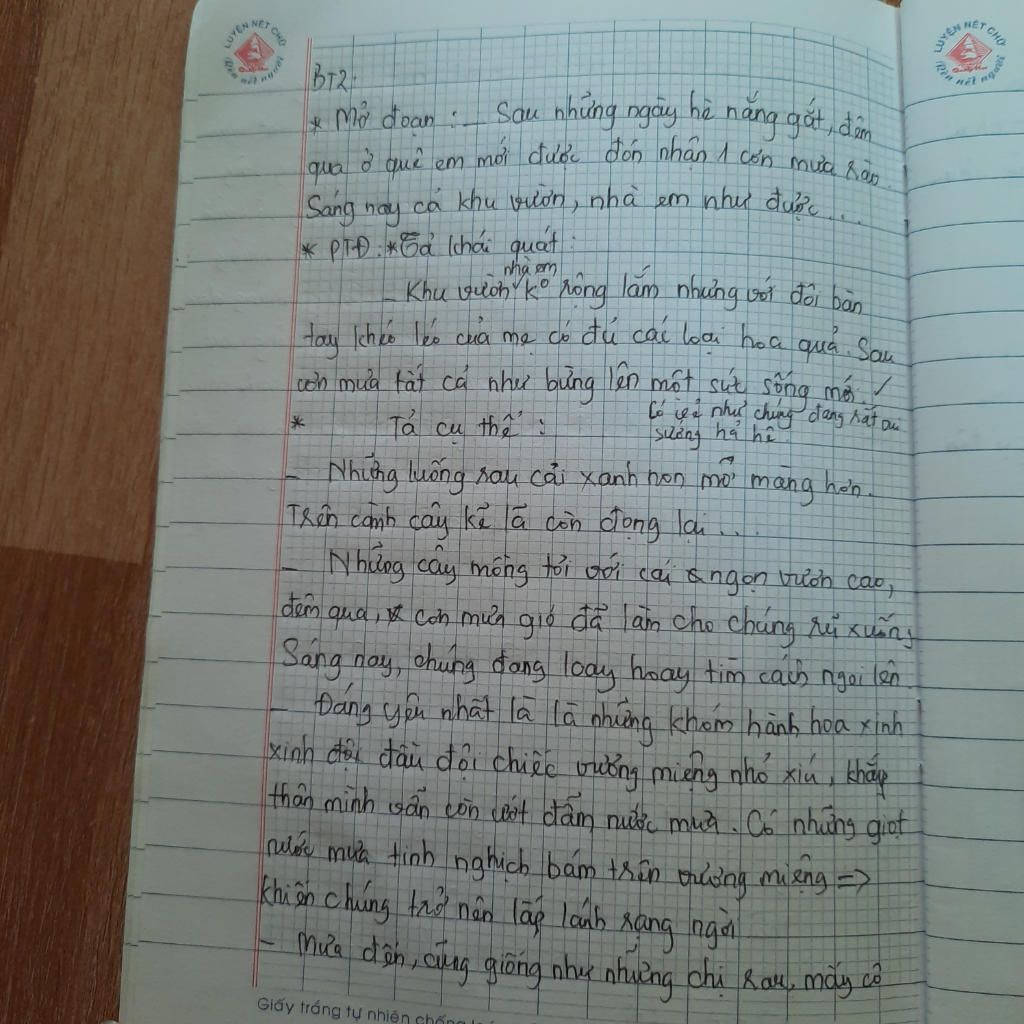 LUYỆN NÉT CHỮ
Rèn nết người
LUYỆN NÉT CHỮ
Rèn nết người
BT2:
* Mở đoạn : _ Sau những ngày hè nắng gắt, đêm
qua ở quê em mới được đón nhận 1 cơn mưa rào.
Sáng nay cả khu vườn, nhà em như được ...
* PTĐ : * Tả khái quát :
nhà em
- Khu vườn kº rộng lắm nhưng với đôi bàn
tay khéo léo của mẹ có đủ các loại hoa quả. Sau
cơn mưa tất cả như bừng lên một sức sống mới. ✓
Có vẻ như chúng đang rất
* Tả cụ thể : sướng hả hê.
- Những luống rau cải xanh non mỡ màng hơn.
Trên cành cây kẽ lá còn đọng lại ...
- Những cây mồng tơi với cái ngọn vươn cao,
đêm qua, cơn mưa gió đã làm cho chúng rủ xuống
Sáng nay, chúng đang loay hoay tìm cách ngoi lên.
- Đáng yêu nhất là là những khóm hành hoa xinh
xinh đội đầu đội chiếc vương miện nhỏ xíu, khắp
thân mình vẫn còn ướt đẫm nước mưa. Có những giọt
nước mưa tinh nghịch bám trên vương miện =>
khiến chúng trở nên lấp lánh rạng ngời
- Mưa đến, cũng giống như những chị rau, mấy cô
Giấy trắng tự nhiên chống